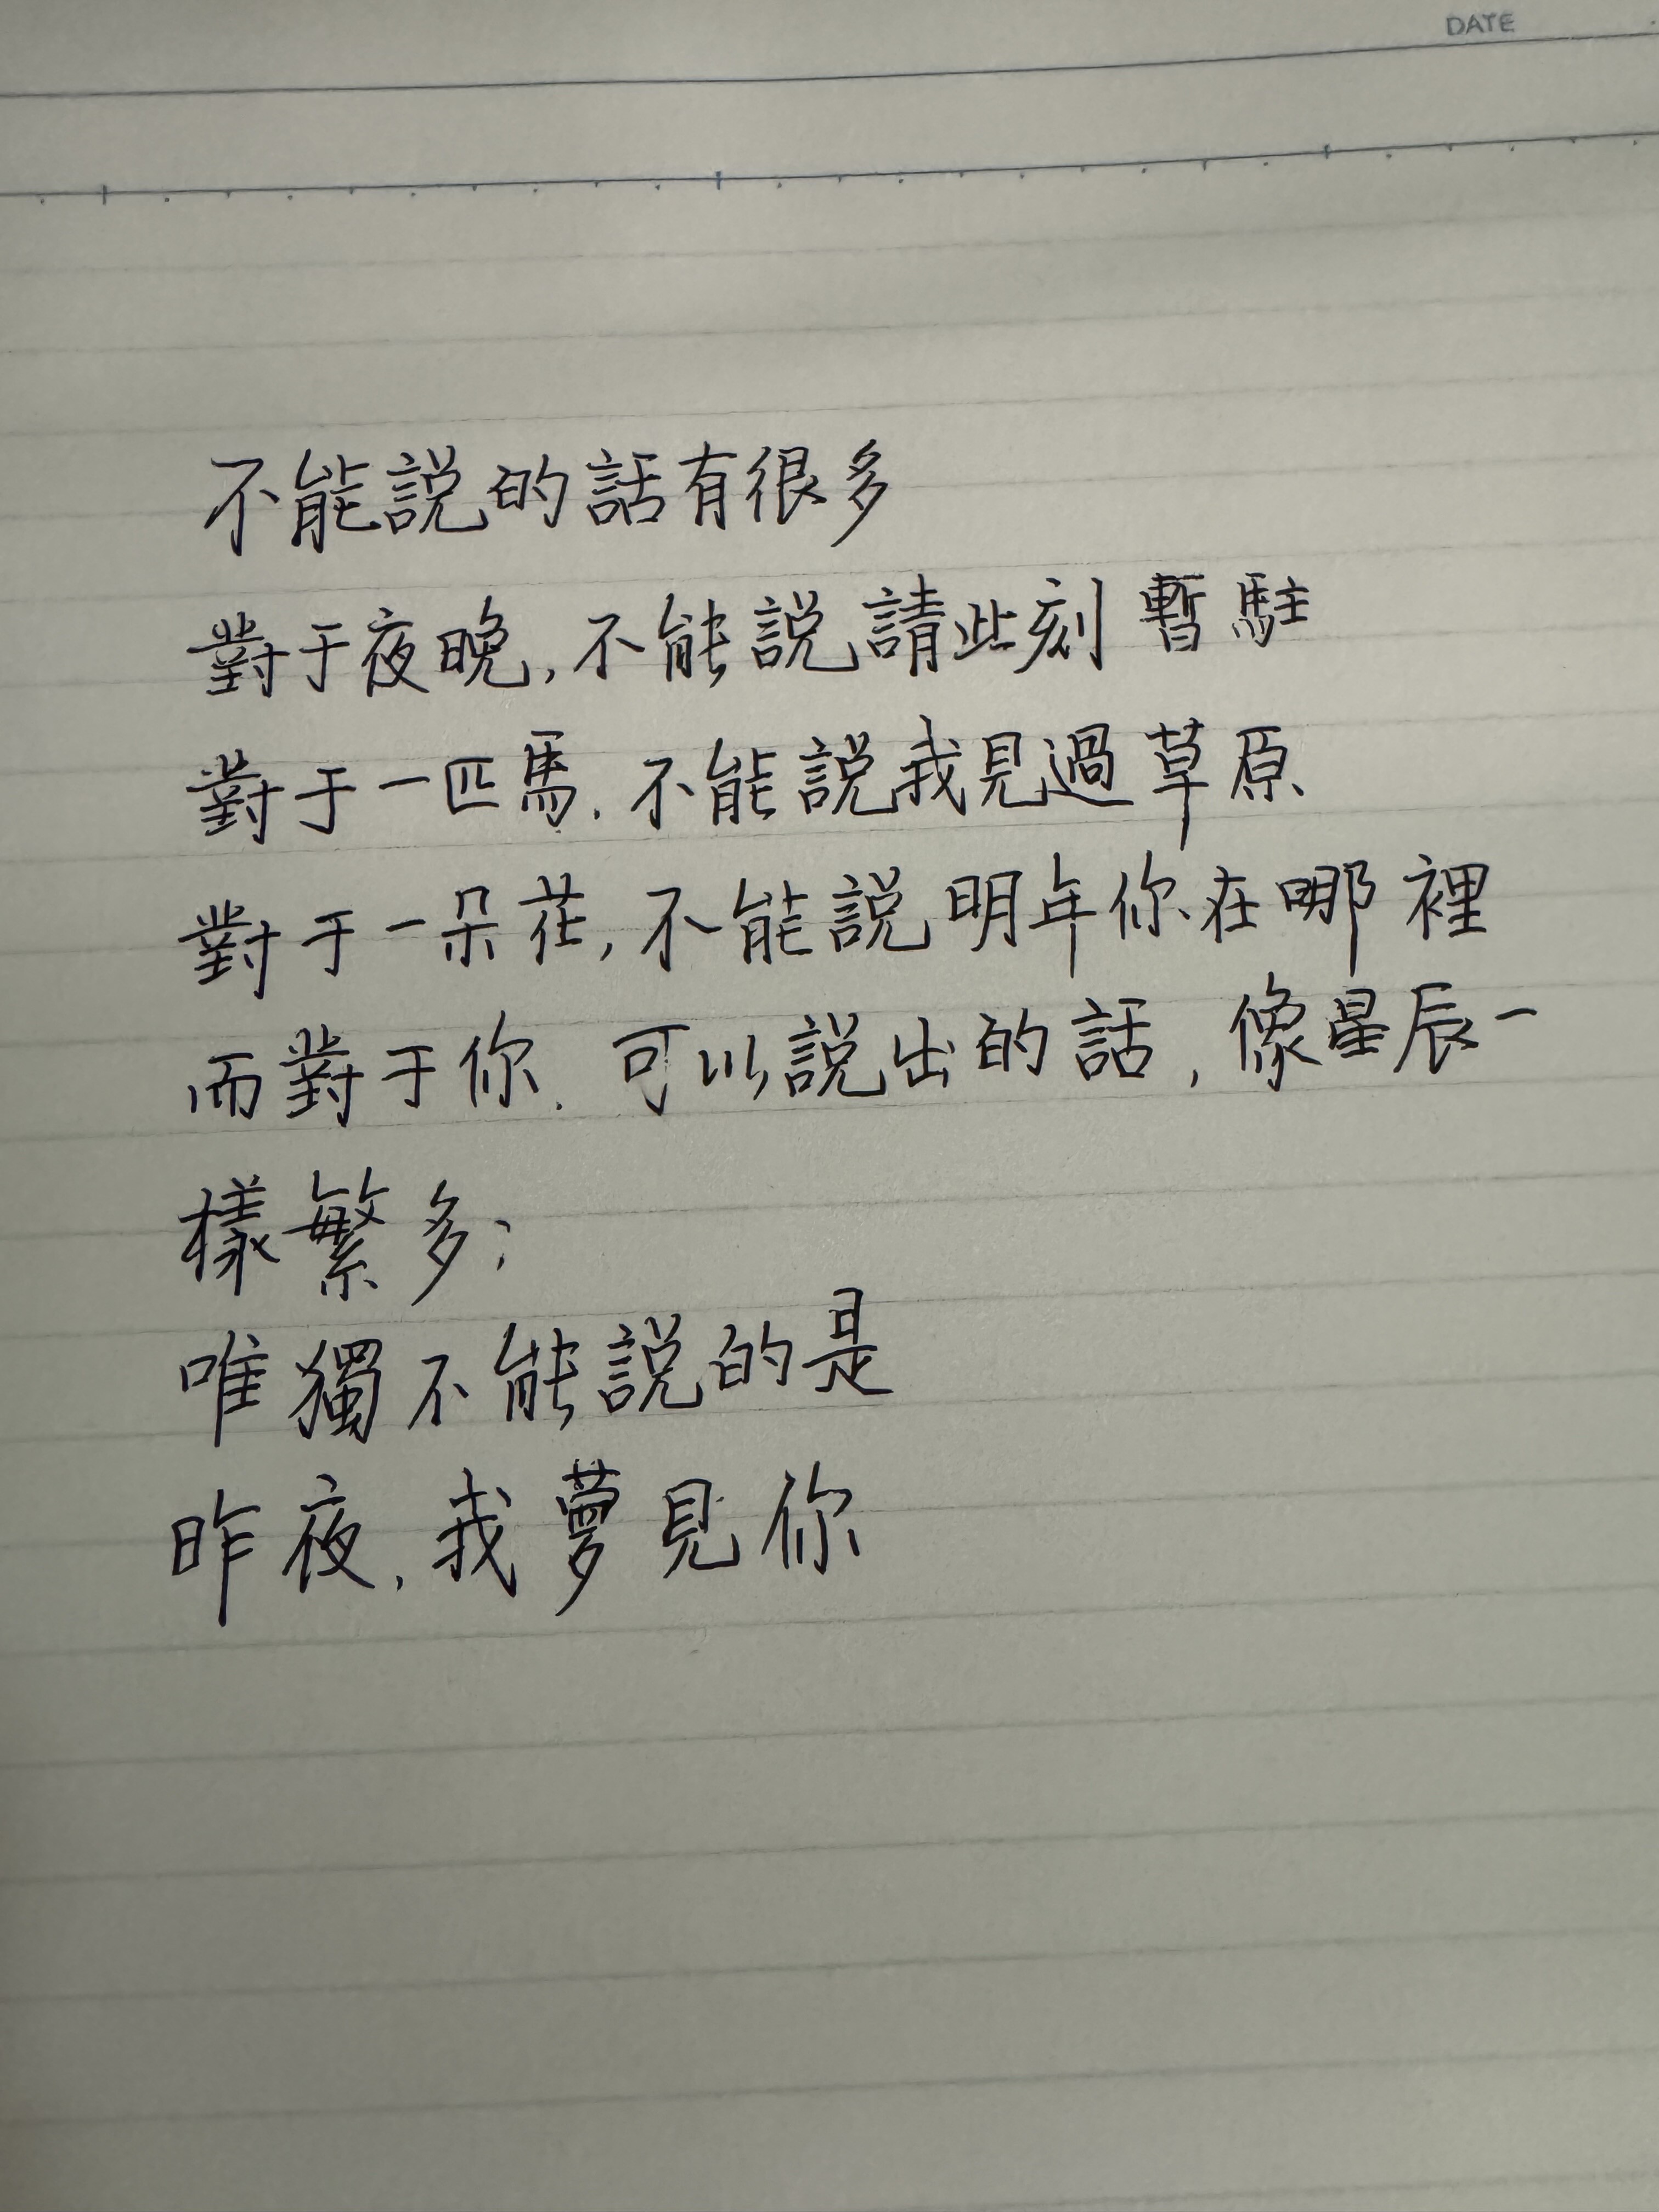 DATE
不能説的話有很多
對于夜晚,不能説請此刻暫駐
對于一匹馬,不能説我見過草原
對于一朵花,不能説明年你在哪裡
而對于你,可以説出的話,像星辰一
樣繁多;
唯獨不能説的是
昨夜,我夢見你